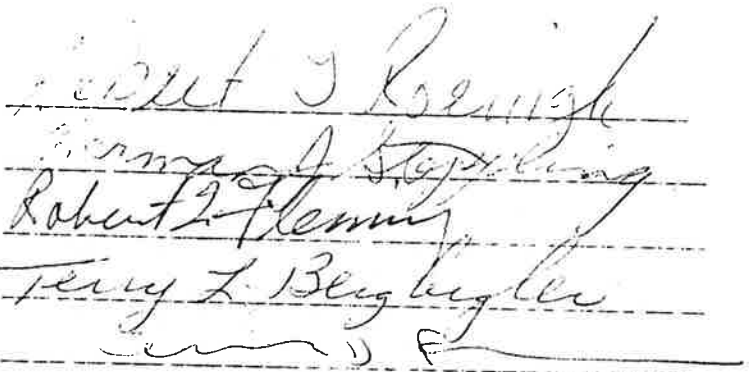 Robert J Roenigk
Norman J. Stoppling
Robert L. Fleming
Terry L. Bergbigler